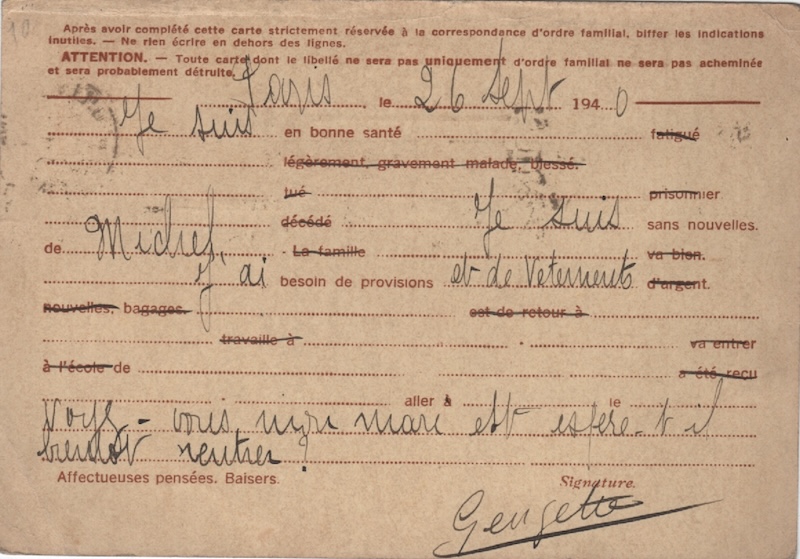 Après avoir complété cette carte strictement réservée à la correspondance d'ordre familial, biffer les indications
inutiles. — Ne rien écrire en dehors des lignes.
ATTENTION. — Toute carte dont le libellé ne sera pas uniquement d'ordre familial ne sera pas acheminée
et sera probablement détruite.
Paris, le 26 Sept 1940
Je suis en bonne santé fatigué
légèrement, gravement malade, blessé.
tué prisonnier
décédé Je suis sans nouvelles.
de Michel, La famille va bien.
j'ai besoin de provisions et de Vetements d'argent.
nouvelles, bagages. est de retour à
travaille à va entrer
à l'école de a été reçu
aller à le
Voyez-vous mon mari est espère-t il
bientôt rentrer ?
Affectueuses pensées. Baisers. Signature.
Georgette